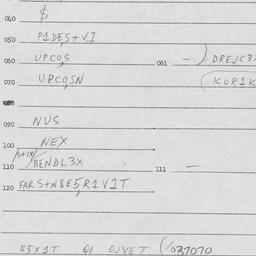 040 $
050 P1DE,S+V.I
060 UPCO,S 061 — DREJC3
070 UPCO,SN KOR1K
090 NUS
100 NEX
110 S+1X/BENDL3X 111 —
120 FARS+N8E5R1V1T
E5X1T Q1 OJVET (/037070